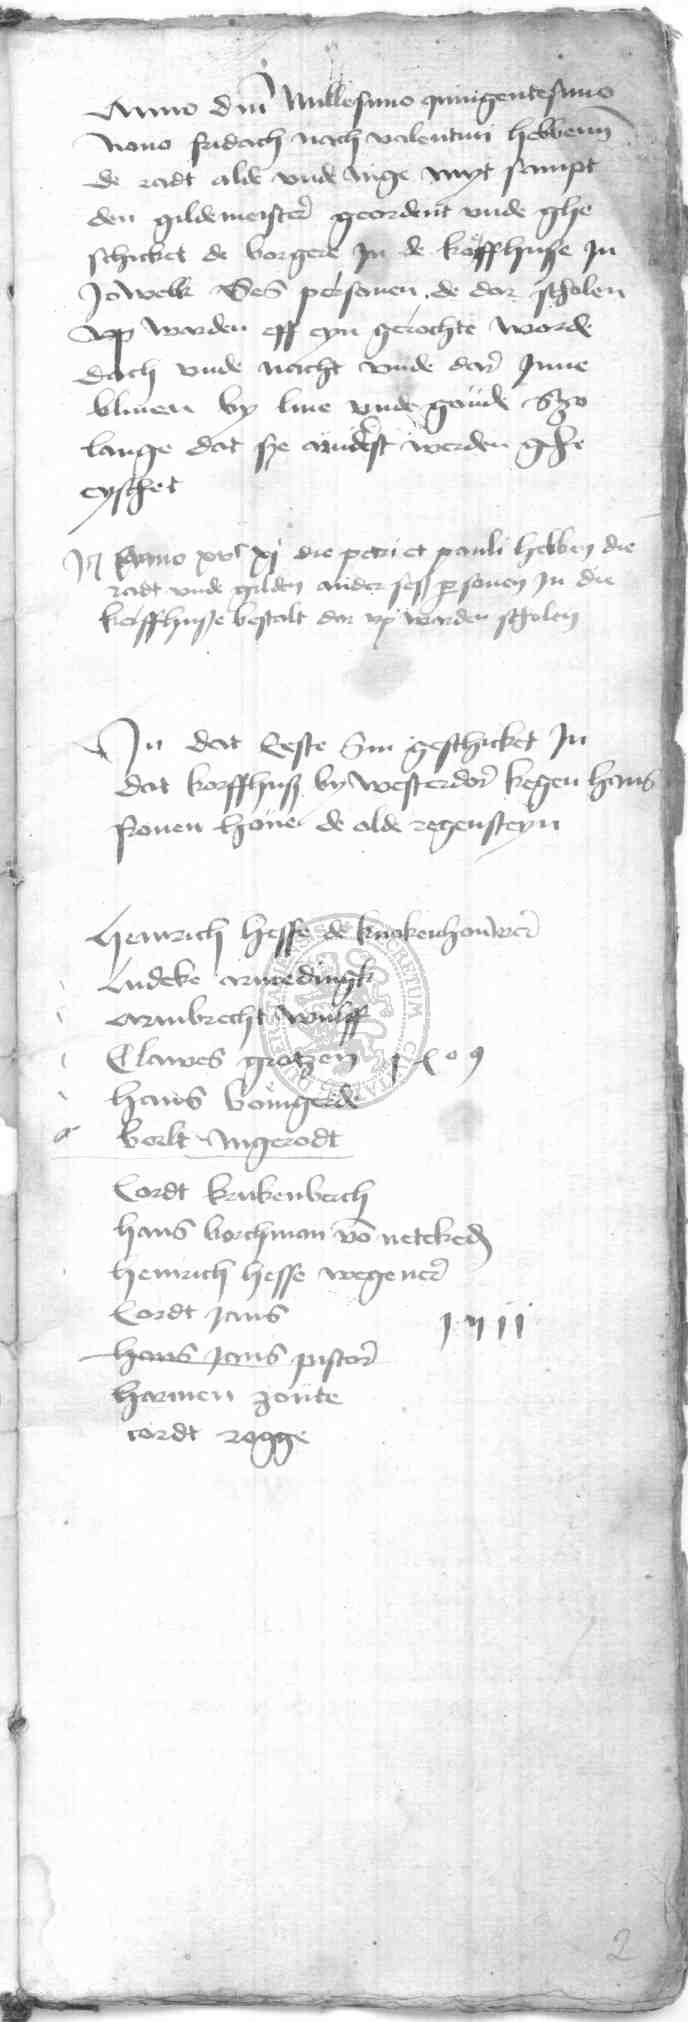 Anno dm Millesimo quingentesimo
nono fridach nach valentini hebbenn
de radt alde vnde nige myt sampt
den gildemeister geordent vnde ghe
schicket de borgere In de korffhuse In
Jowelk Ses personen de dar scholen
vp warden eff eyn gerochte worde
dach vnde nacht vnde dar Inne
bliuen by liue vnde gude Szo
lange dat sze anderst werden ghe
eyschet
Anno xvc xj die petri et pauli hebben die
radt vnde gilden ander sess personen In die
korffhusse bestalt dar vp warden scholen
In dat Erste Sin geschicket In
dat korffhuss by westerdor kegen hans
houe de olde regensteyn
Henrich hesse de knokenhouwer
Ludeke
Armbrecht wulff
Clawes grotzen
hans bomgerde
Cordt krukenberch
hans borchman
Heinrich hesse wegener
Cordt Jans
hans Jans pistor
harmen
cordt rogge
2